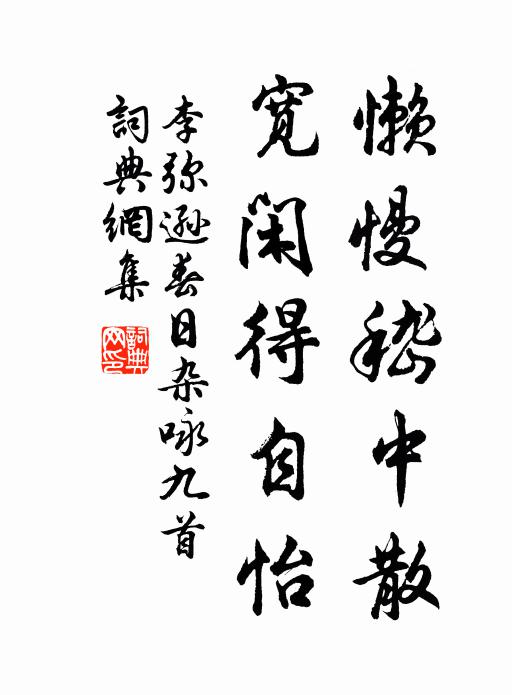 懶慢嵇中散
寬閑得自怡
李弥遜春日杂咏九首
詞典網集
詞典网印